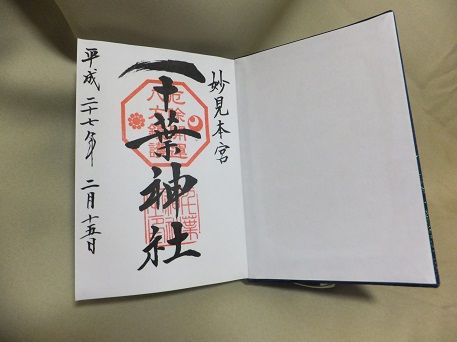 妙見本宮
千葉神社
平成二十七年 二月十五日